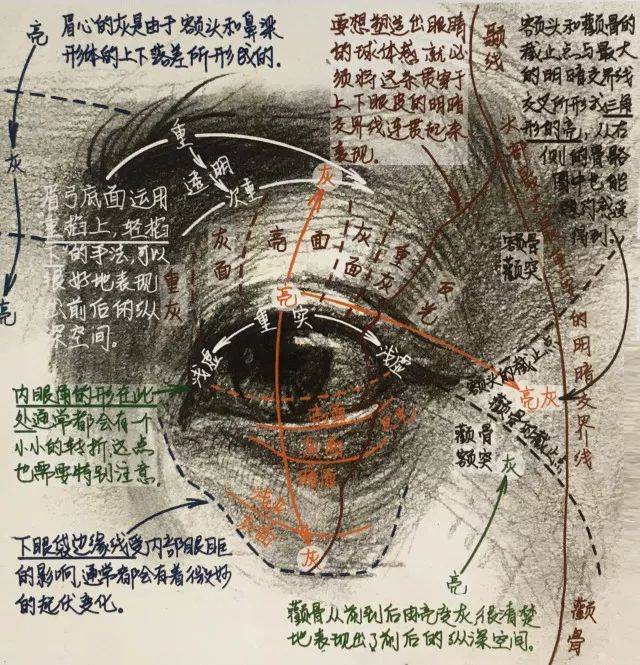 亮
灰
亮
眉心的灰是由于额头和鼻梁
形体的上下落差所形成的。
要想塑造出眼睛
的球体感,就必
须将这条贯穿于
上下眼皮的明暗
交界线连贯起来
表现。
颞线
额头和颧骨的
截止点与最大
的明暗交界线
交叉所形成三角
形的亮,从右
侧的骨骼
图中也能
得到。
重
透明
次重
灰
眉弓底面运用
重掐上,轻掐
下的手法,可以
很好地表现
出前后的纵
深空间。
重灰
灰面
亮面
灰面
重灰
反光
额骨
颧突
亮
重实
浅虚
浅虚
的明暗交界线
额头的截止点
亮灰
颧骨的截止点
颧骨
额突
灰
亮
内眼角的形在此
处通常都会有一个
小小的转折,这点
也需要特别注意。
灰
下眼袋边缘线受内部眼眶
的影响,通常都会有着微妙
的起伏变化。
颧骨从前到后由亮变灰,很清楚
地表现出了前后的纵深空间。
颧骨